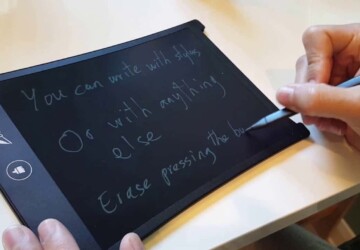 You can write with stylus
Or with anything
else
Erase pressing the